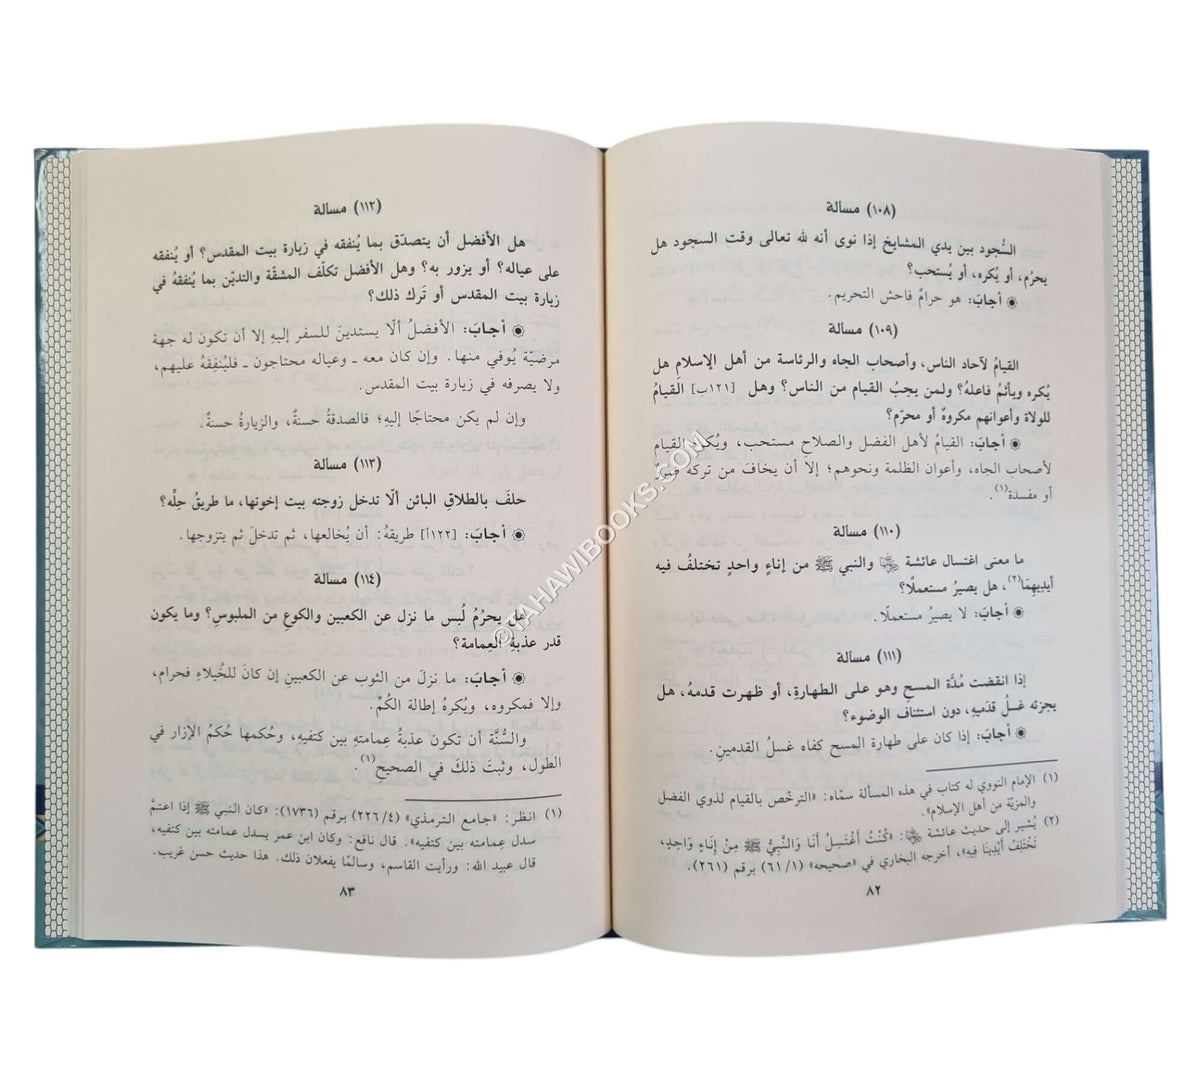 (١٠٨) مسالة
السُّجود بين يدي المشايخ إذا نوى أنه لله تعالى وقت السجود هل
يحرُم، أو يُكره، أو يُستحب؟
◉ أجابَ: هو حرامٌ فاحش التحريم.
(١٠٩) مسالة
القيامُ لآحاد الناس، وأصحاب الجاه والرئاسة من أهل الإسلام هل
يُكره ويأثمُ فاعلهُ؟ ولمن يجبُ القيام من الناس؟ وهل [١٢١ب] القيامُ
للولاة وأعوانهم مكروهٌ أو محرّم؟
◉ أجابَ: القيامُ لأهل الفضل والصلاح مستحب، ويُكره القيام
لأصحاب الجاه، وأعوان الظلمة ونحوهم؛ إلا أن يخافَ من تركه فتنة،
أو مفسدة(١).
(١١٠) مسالة
ما معنى اغتسال عائشة ﵂ والنبي ﷺ من إناءٍ واحدٍ تختلفُ فيه
أيديهمَا(٢)، هل يصيرُ مستعملًا؟
◉ أجابَ: لا يصيرُ مستعملًا.
(١١١) مسالة
إذا انقضت مُدَّة المسحِ وهو على الطهارةِ، أو ظهرت قدمهُ، هل
يجزئه غسلُ قدَميهِ، دون استئناف الوضوء؟
◉ أجابَ: إذا كان على طهارة المسح كفاه غسلُ القدمينِ.
(١) الإمام النووي له كتاب في هذه المسألة سمّاه: «الترخّص بالقيام لذوي الفضل
والمزيّة من أهل الإسلام».
(٢) يُشير إلى حديث عائشة ﵂: «كُنْتُ أَغْتَسِلُ أَنَا وَالنَّبِيُّ ﷺ مِنْ إِنَاءٍ وَاحِدٍ،
تَخْتَلِفُ أَيْدِينَا فِيهِ»، أخرجه البخاري في «صحيحه» (٦١/١) برقم (٢٦١).
٨٢
(١١٢) مسالة
هل الأفضل أن يتصدّق بما يُنفقه في زيارة بيت المقدس؟ أو يُنفقه
على عياله؟ أو يزور به؟ وهل الأفضل تكلّف المشقّة والتديّن بما يُنفقهُ في
زيارة بيت المقدس أو تَرك ذلك؟
◉ أجابَ: الأفضلُ ألّا يستدينَ للسفر إليهِ إلا أن تكون له جهة
مرضيّة يُوفي منها. وإن كان معه ـ وعياله محتاجون ـ فليُنفِقهُ عليهم،
ولا يصرفه في زيارة بيت المقدس.
وإن لم يكن محتاجًا إليهِ؛ فالصدقةُ حسنةٌ، والزيارةُ حسنةٌ.
(١١٣) مسالة
حلفَ بالطلاقِ البائن ألّا تدخل زوجته بيت إخوتها، ما طريقُ حِلِّه؟
◉ أجابَ: [١٢٢أ] طريقهُ: أن يُخالعها، ثم تدخلَ ثم يتزوجها.
(١١٤) مسالة
هل يحرُمُ لُبس ما نزل عن الكعبين والكوعِ من الملبوس؟ وما يكون
قدر عذبةِ العِمامة؟
◉ أجابَ: ما نزلَ من الثوب عن الكعبينِ إن كانَ للخُيلاءِ فحرام،
وإلا فمكروه، ويُكرهُ إطالة الكُمِّ.
والسُّنَّة أن تكون عذبةُ عِمامتهِ بين كتفيهِ، وحُكمها حُكمُ الإزار في
الطول، وثبتَ ذلكَ في الصحيحِ(١).
(١) انظر: «جامع الترمذي» (٢٢٦/٤) برقم (١٧٣٦): «كان النبي ﷺ إذا اعتمَّ
سدل عِمامته بين كتفيه». قال نافع: وكان ابن عمر يسدل عمامته بين كتفيه.
قال عبيد الله: ورأيت القاسم، وسالمًا يفعلان ذلك. هذا حديث حسن غريب.
٨٣
©TAHAWIBOOKS.COM